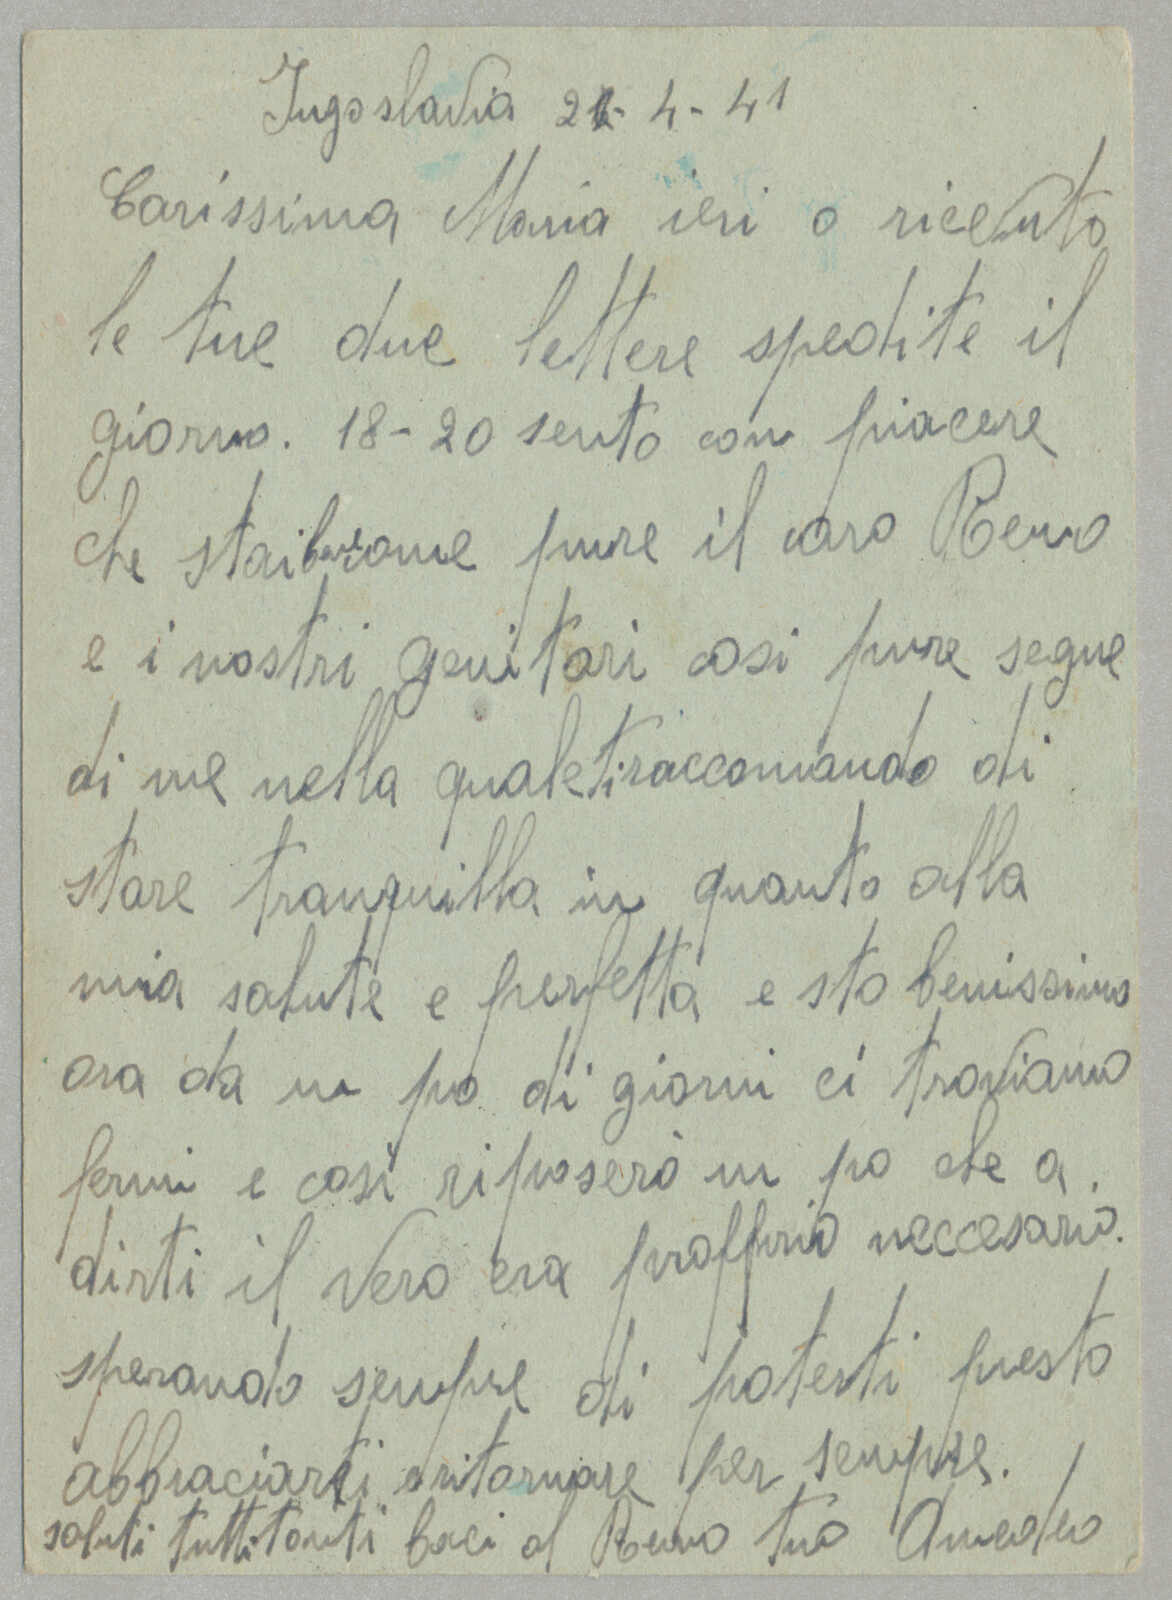 Jugoslavia 21-4-41
Carissima Maria ieri o ricevuto
le tue due lettere spedite il
giorno. 18-20 sento con piacere
che stai bene come pure il caro Remo
e i nostri genitori cosi pure segue
di me nella quale ti raccomando di
stare tranquilla in quanto alla
mia salute e perfetta e sto benissimo
ora da un po di giorni ci troviamo
fermi e cosi riposerò un po che a
dirti il vero era proffrio neccesario.
sperando sempre di poterti presto
abbraciarti e ritornare per sempre.
saluti tutti tanti baci al Remo tuo Amedeo